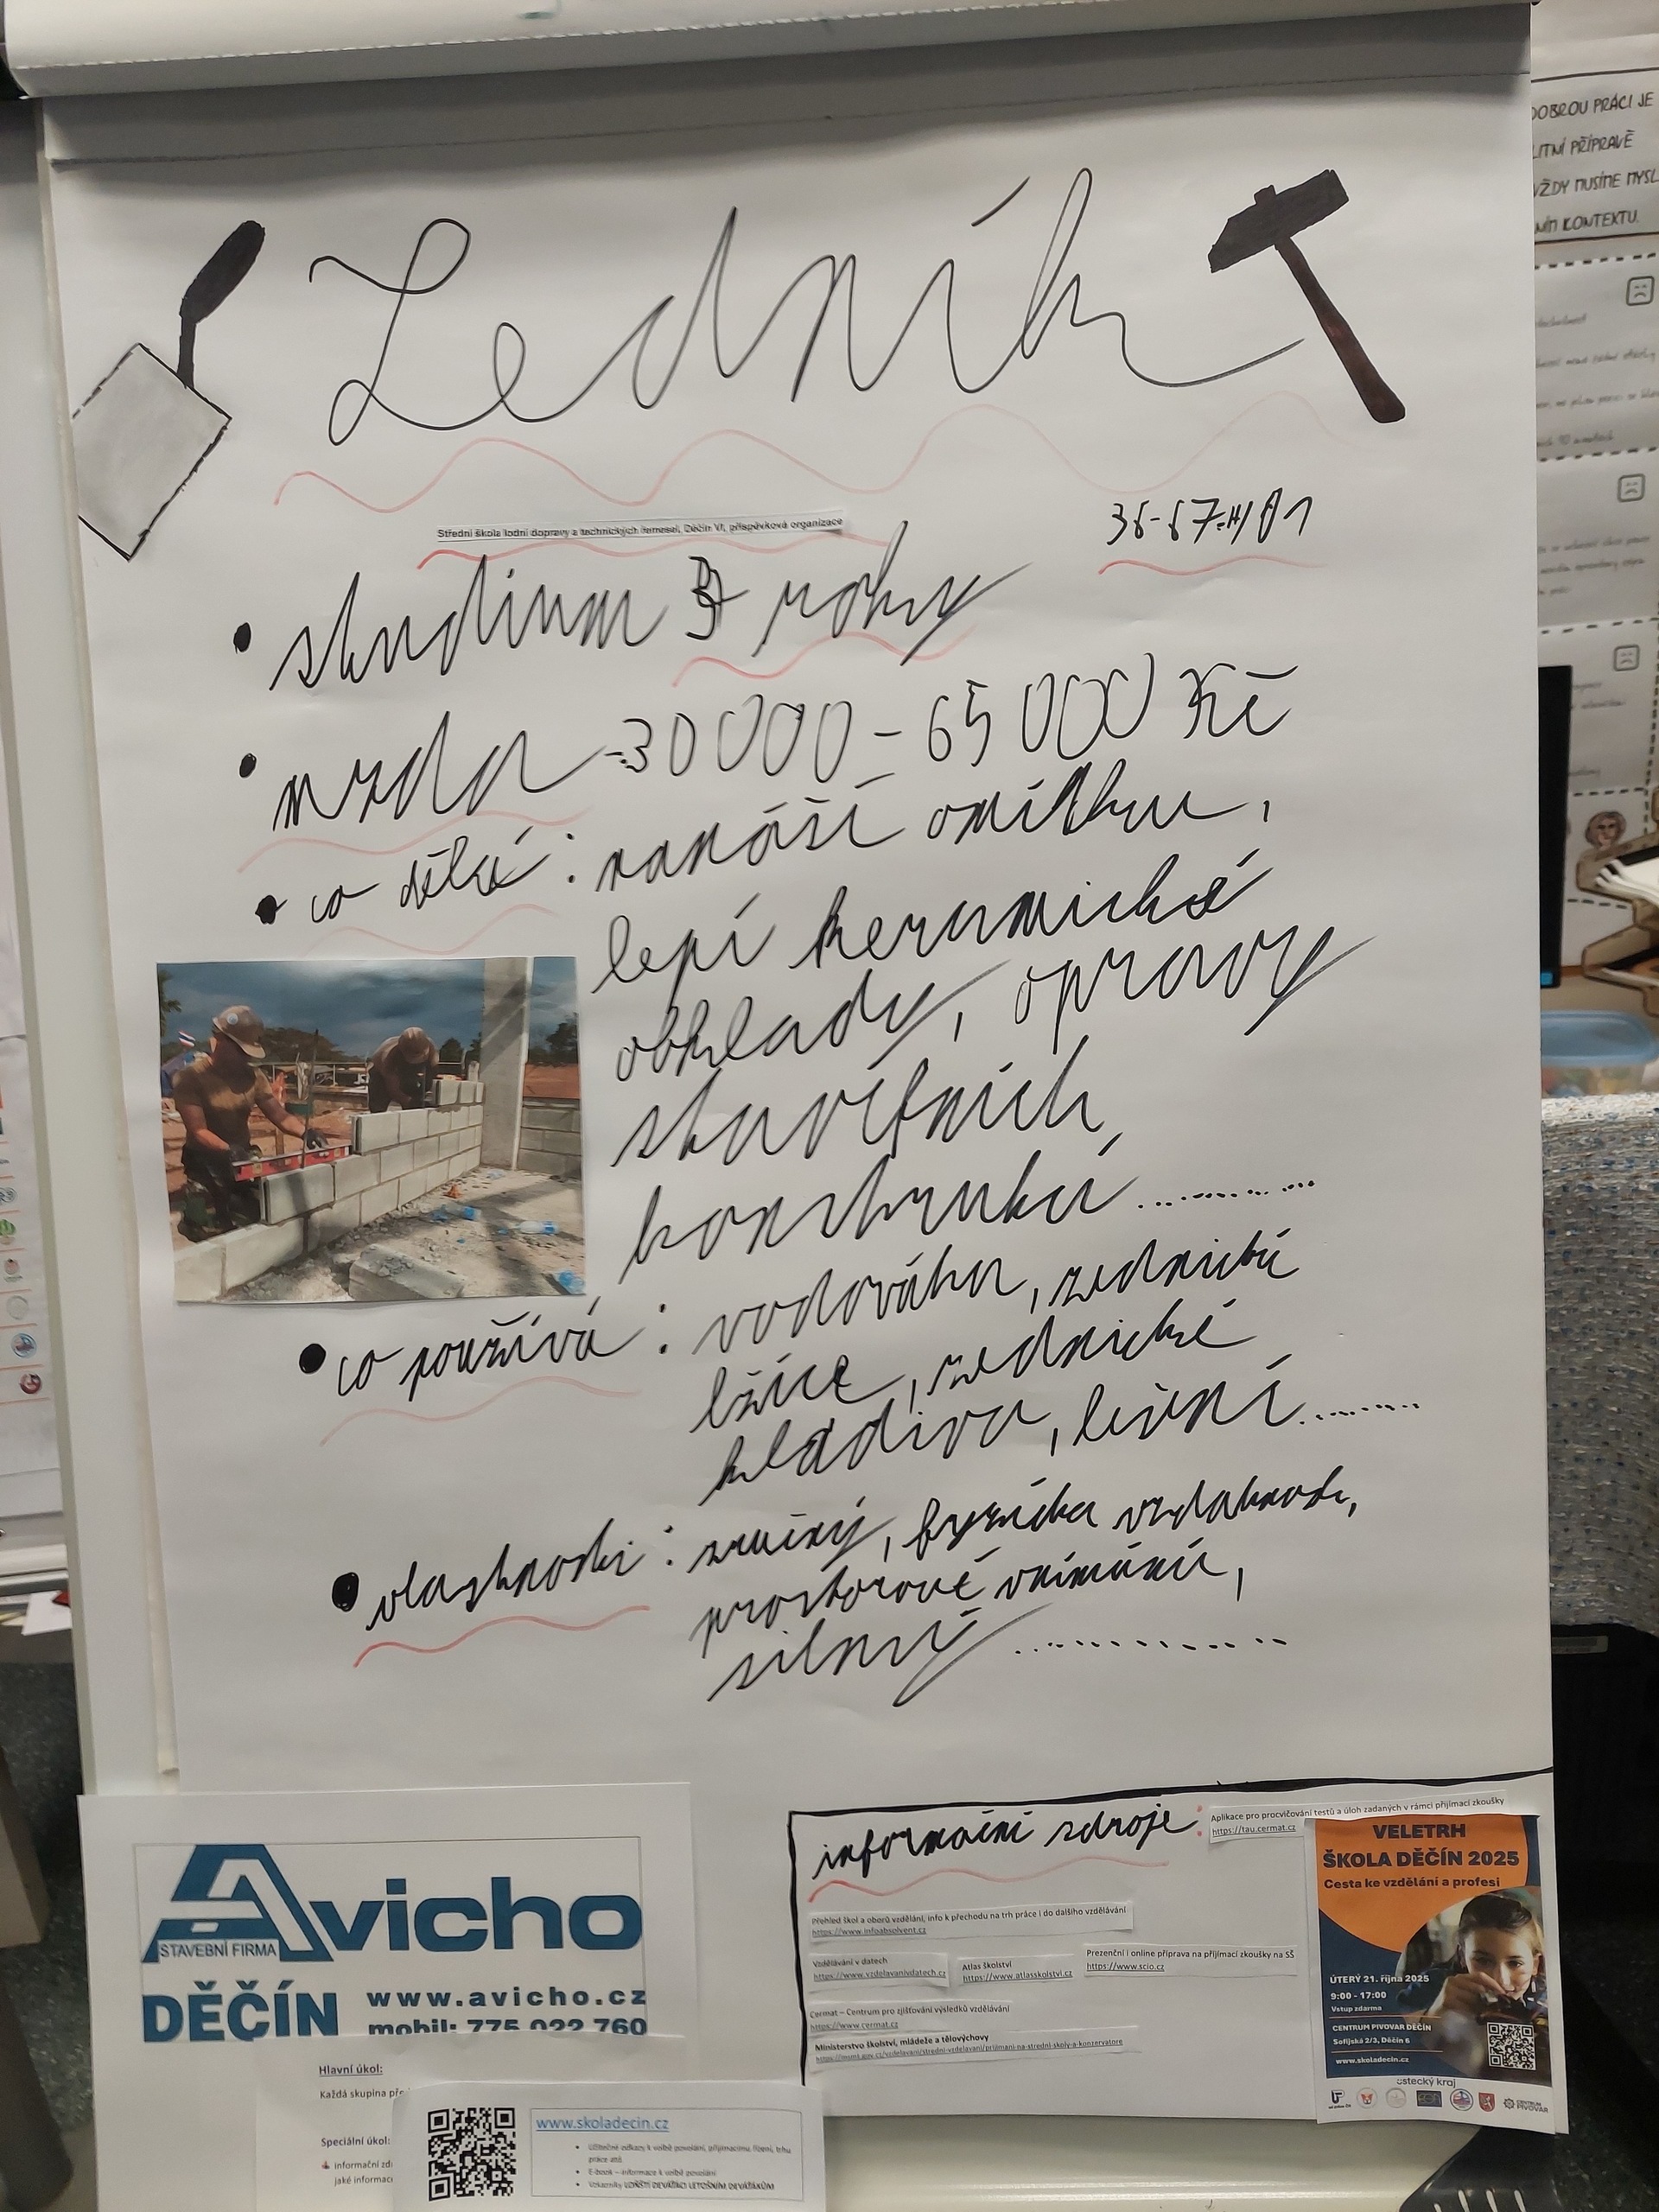 Zedník
Střední škola lodní dopravy a technických řemesel, Děčín VI, příspěvková organizace
36-67-H/01
• studium 3 roky
• mzda -30 000 - 65 000 Kč
• co dělá: nanáší omítku,
lepí keramické
obklady, opravy
stavebních
konstrukcí ............
• co používá: vodováha, zednická
lžíce, zednické
kladivo, lešní.........
• vlastnosti: zručný, fyzická vzdatnost,
prostorové vnímání,
silný ..............
Avicho
STAVEBNÍ FIRMA
DĚČÍN www.avicho.cz
mobil: 775 022 760
Hlavní úkol:
Každá skupina
Speciální úkol:
informační
jaké
www.skoladecin.cz
• Užitečné odkazy k volbě povolání, přijímacímu řízení, trhu
práce atd.
• E-book – informace k volbě povolání
• LETOŠNÍM DEVÁŤÁKŮM
informační zdroje:
Aplikace pro procvičování testů a úloh zadaných v rámci přijímací zkoušky
https://tau.cermat.cz
Přehled škol a oborů vzdělání, info k přechodu na trh práce i do dalšího vzdělávání
https://www.infoabsolvent.cz
Vzdělávání v datech
https://www.vzdelavanivdatech.cz
Atlas školství
https://www.atlasskolstvi.cz
Prezenční i online příprava na přijímací zkoušky na SŠ
https://www.scio.cz
Cermat – Centrum pro zjišťování výsledků vzdělávání
https://www.cermat.cz
Ministerstvo školství, mládeže a tělovýchovy
https://msmt.gov.cz/vzdelavani/stredni-vzdelavani/prijimani-na-stredni-skoly-a-konzervatore
VELETRH
ŠKOLA DĚČÍN 2025
Cesta ke vzdělání a profesi
ÚTERÝ 21. října 2025
9:00 - 17:00
Vstup zdarma
CENTRUM PIVOVAR DĚČÍN
Sofijská 2/3, Děčín 6
www.skoladecin.cz
ústecký kraj
CENTRUM
PIVOVAR
DOBROU PRÁCI JE
PŘÍPRAVĚ
VŽDY MUSÍME
KONTEXTU.